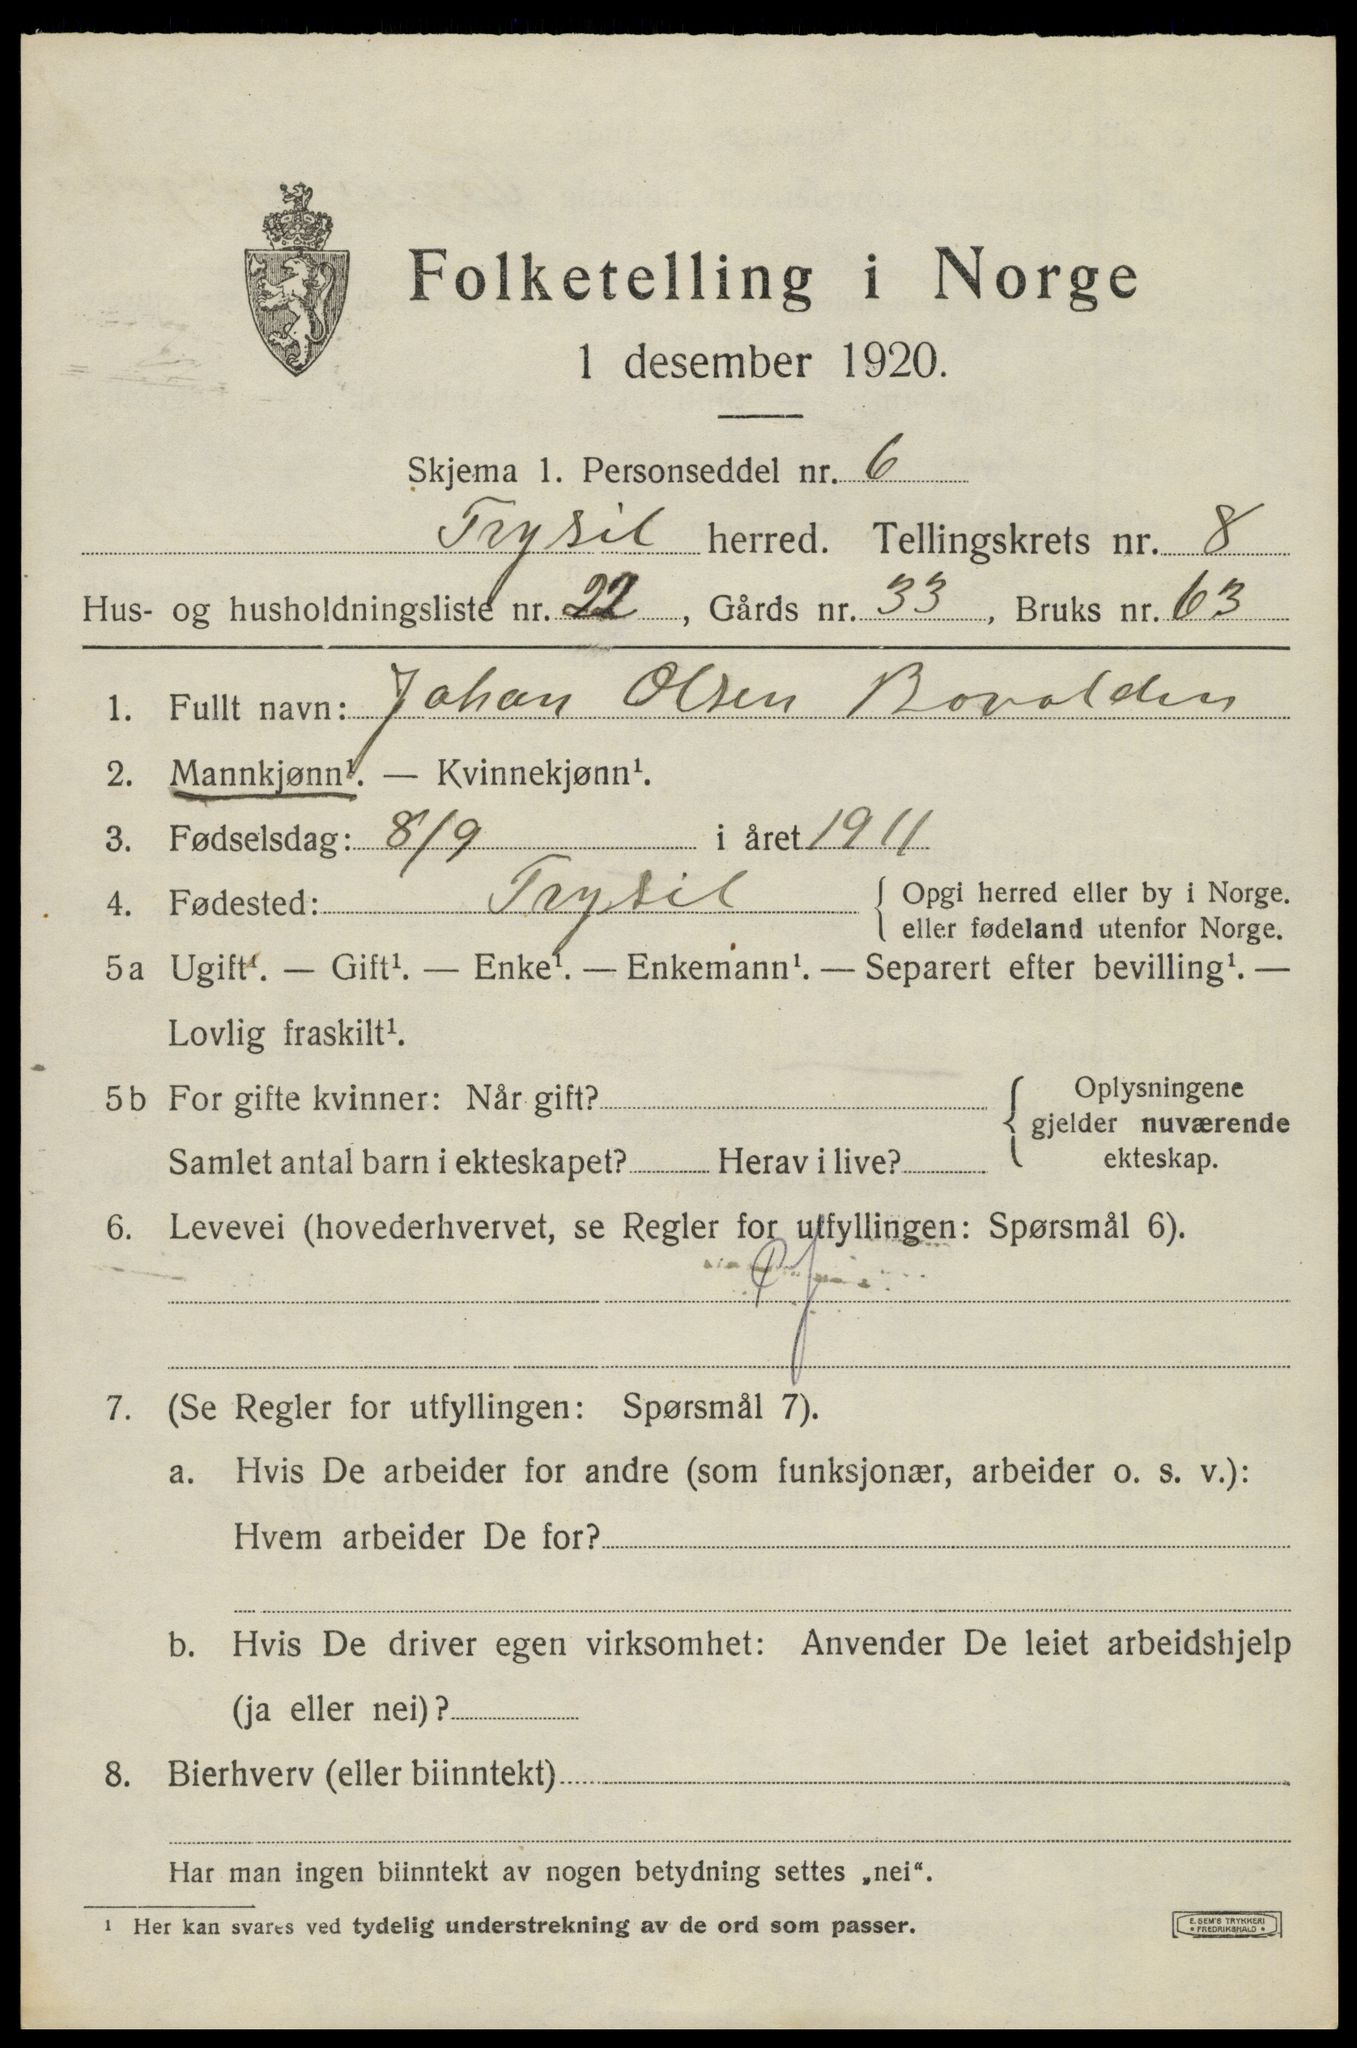 Folketelling i Norge
1 desember 1920.
Skjema 1. Personseddel nr. 6
Trysil herred. Tellingskrets nr. 8
Hus- og husholdningsliste nr. 22, Gårds nr. 33, Bruks nr. 63
1. Fullt navn: Johan Olsen Bovolden
2. Mannkjønn¹. — Kvinnekjønn¹.
3. Fødselsdag: 8/9 i året 1911
4. Fødested: Trysil { Opgi herred eller by i Norge.
eller fødeland utenfor Norge.
5a Ugift¹. — Gift¹. — Enke¹. — Enkemann¹. — Separert efter bevilling¹. —
Lovlig fraskilt¹.
5b For gifte kvinner: Når gift? { Oplysningene
gjelder nuværende
Samlet antal barn i ekteskapet? Herav i live? ekteskap.
6. Levevei (hovederhvervet, se Regler for utfyllingen: Spørsmål 6).
7. (Se Regler for utfyllingen: Spørsmål 7).
a. Hvis De arbeider for andre (som funksjonær, arbeider o. s. v.):
Hvem arbeider De for?
b. Hvis De driver egen virksomhet: Anvender De leiet arbeidshjelp
(ja eller nei)?
8. Bierhverv (eller biinntekt)
Har man ingen biinntekt av nogen betydning settes „nei“.
¹ Her kan svares ved tydelig understrekning av de ord som passer.
E. SEM'S TRYKKERI
• FREDRIKSHALD •